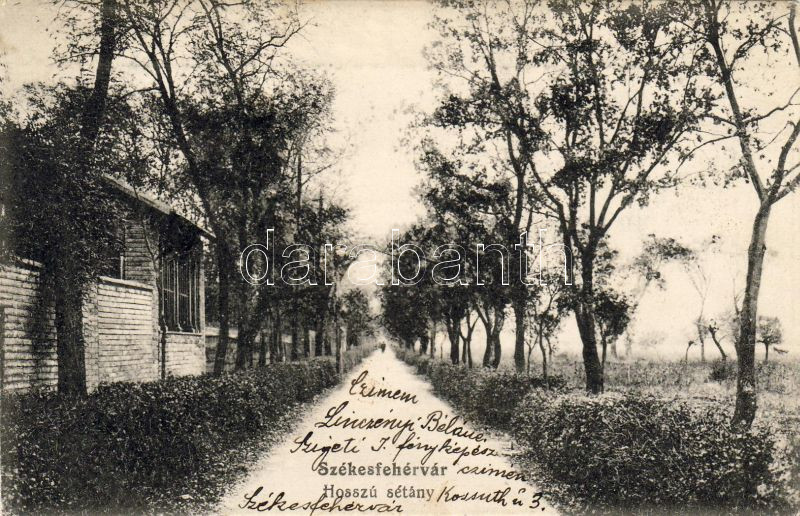 darabanth
Czimem
Linczényi Béláné
Szigeti J. fényképész
Székesfehérvár czimen
Hosszú sétány Kossuth u 3.
Székesfehérvár